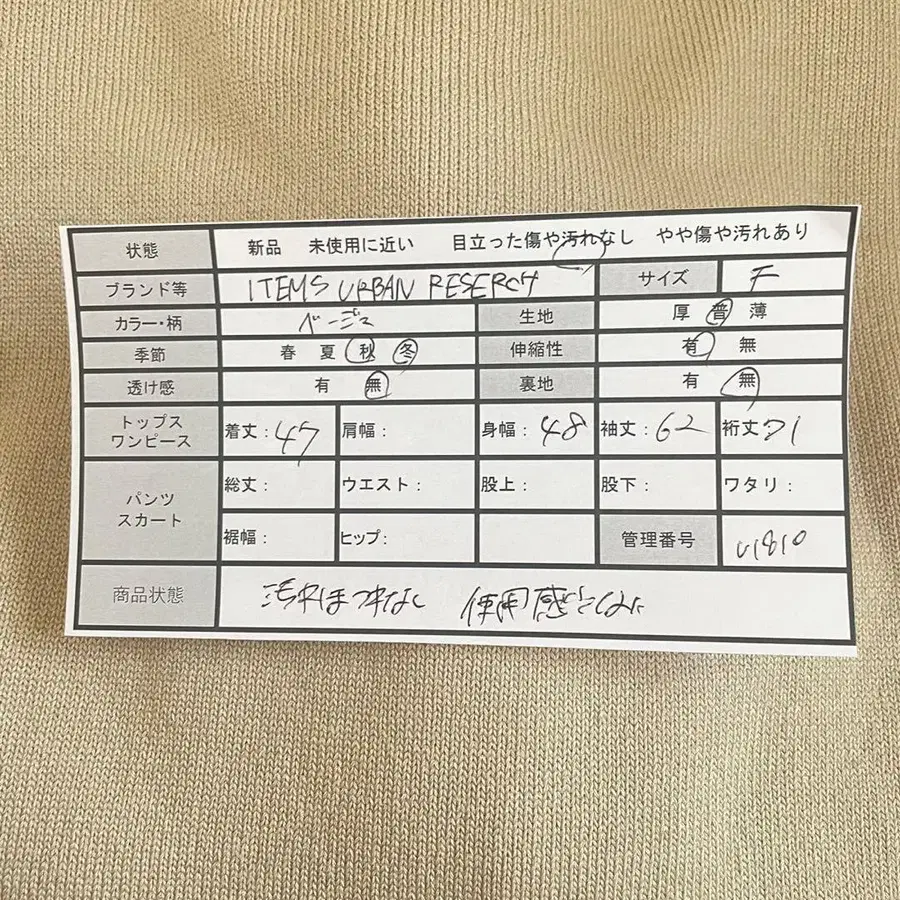 状態 新品 未使用に近い 目立った傷や汚れなし やや傷や汚れあり
ブランド等 ITEMS URBAN RESERCH サイズ F
カラー・柄 ベージュ 生地 厚 普 薄
季節 春 夏 秋 冬 伸縮性 有 無
透け感 有 無 裏地 有 無
トップス
ワンピース
着丈: 47 肩幅: 身幅: 48 袖丈: 62 裄丈 71
パンツ
スカート
総丈: ウエスト: 股上: 股下: ワタリ:
裾幅: ヒップ: 管理番号 U1810
商品状態 汚れほつれなし 使用感